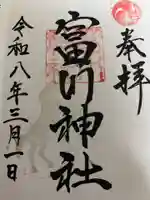 奉拝
富門神社
令和八年三月一日